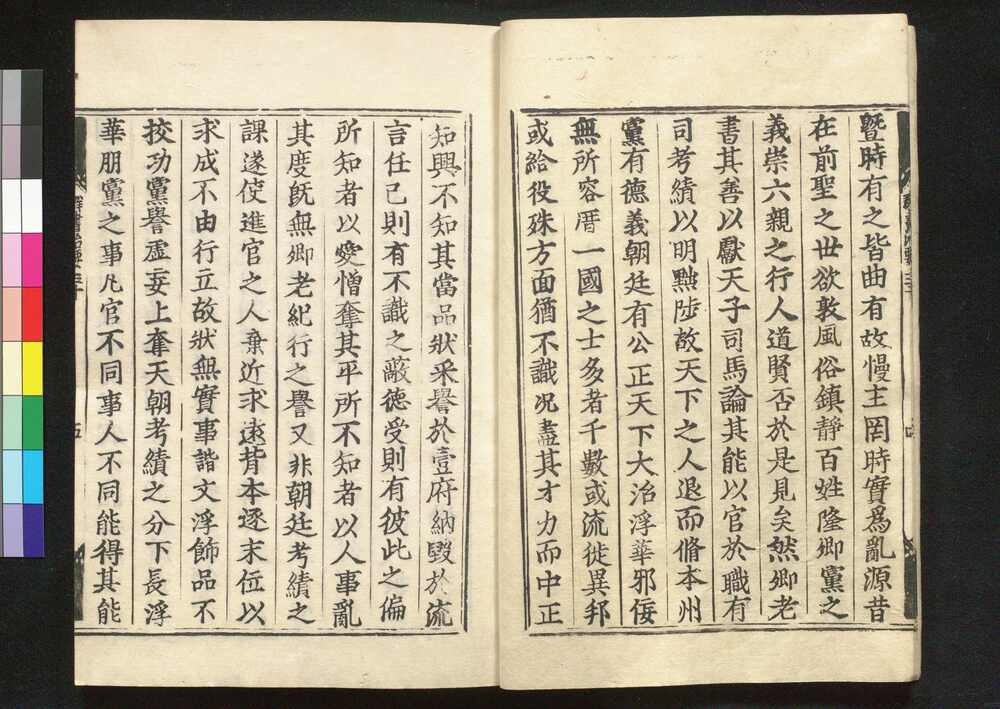 曁時有之皆曲有故慢主罔時實爲亂源昔
在前聖之世欲敦風俗鎮靜百姓隆郷黨之
義崇六親之行人道賢否於是見矣然郷老
書其善以獻天子司馬論其能以官於職有
司考績以明黜陟故天下之人退而脩本州
黨有德義朝廷有公正天下大治浮華邪佞
無所容厝一國之士多者千數或流徙異邦
或給役殊方面猶不識况盡其才力而中正
知興不知其當品狀采譽於壹府納毀於流
言任己則有不識之蔽徳受則有彼此之偏
所知者以愛憎奪其平所不知者以人事亂
其度旣無郷老紀行之譽又非朝廷考績之
課遂使進官之人棄近求遠背本逐末位以
求成不由行立故狀無實事諧文浮飾品不
挍功黨譽虛妄上奪天朝考績之分下長浮
華朋黨之事凡官不同事人不同能得其能
五